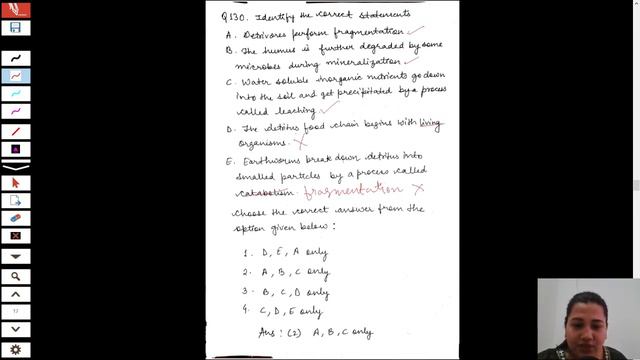 Q130. Identify the correct statements
A. Detrivores perform fragmentation.
B. The humus is further degraded by some
microbes during mineralization.
C. Water soluble inorganic nutrients go down
into the soil and get precipitated by a process
called leaching
D. The detritus food chain begins with living
organisms.
E. Earthworms break down detritus into
smalled particles by a process called
catabolism. fragmentation
Choose the correct answer from the
option given below:
1. D, E, A only
2. A, B, C only
3. B, C, D only
4. C, D, E only
Ans: (2) A, B, C only